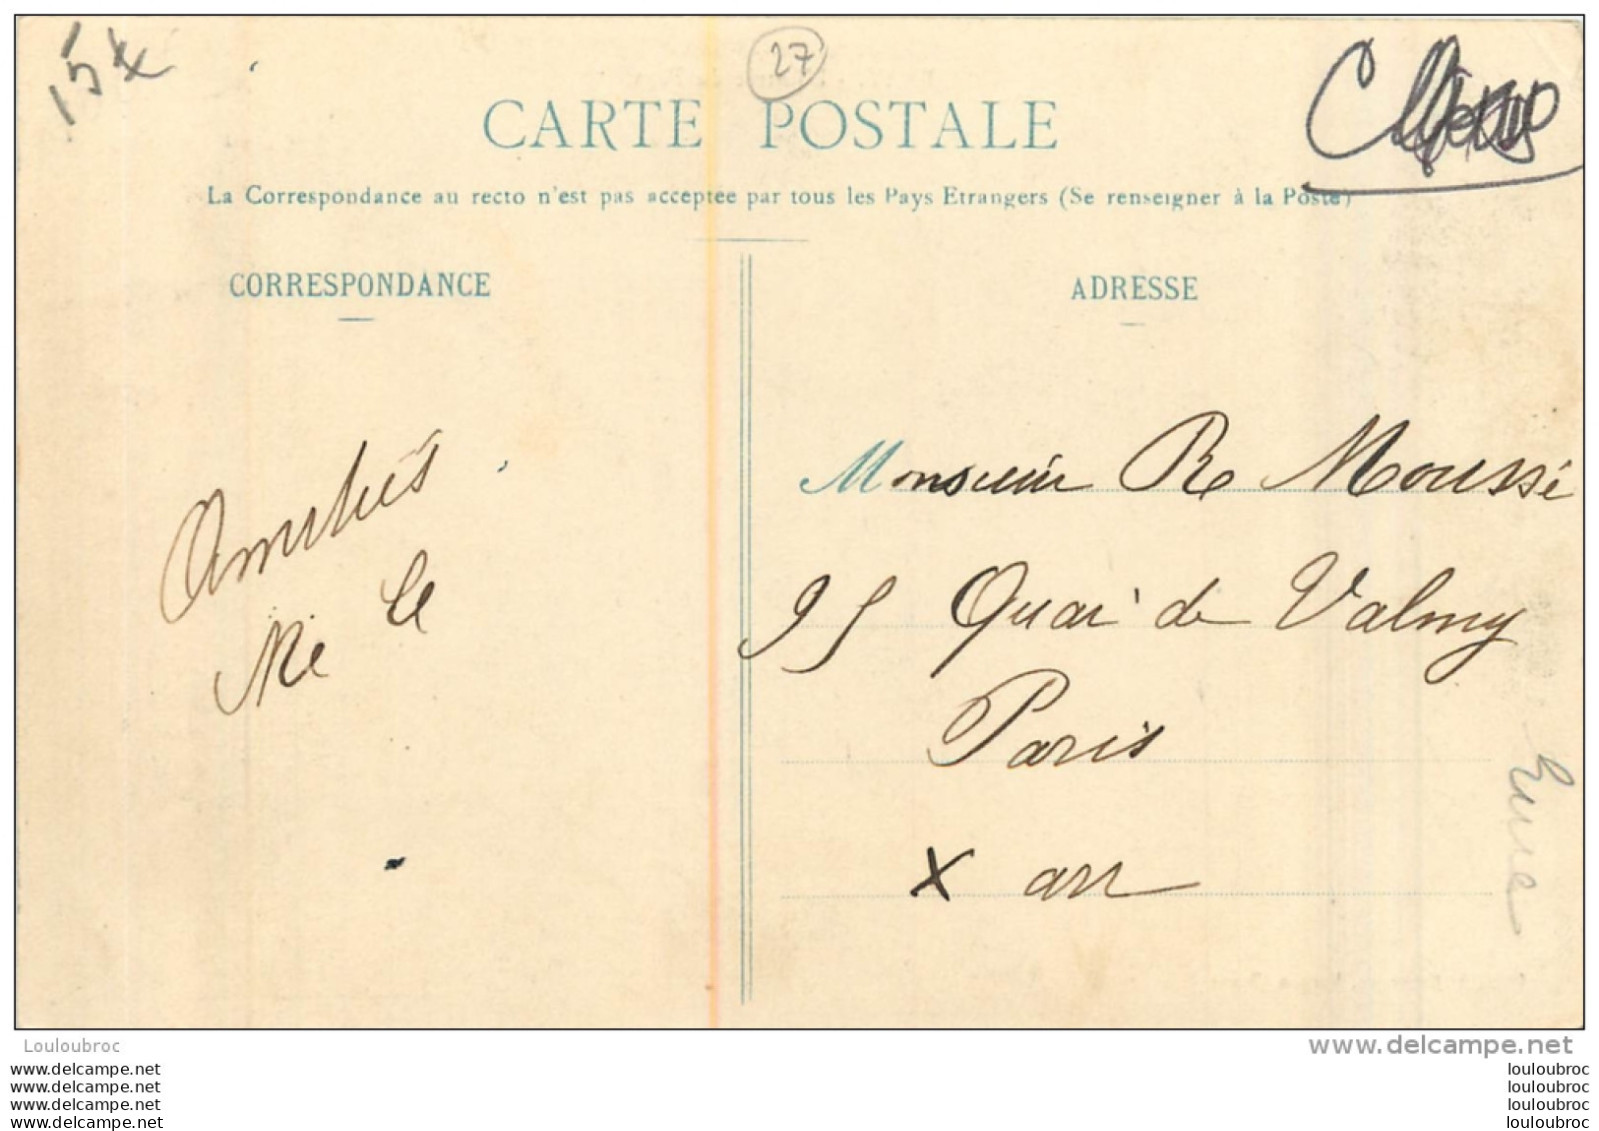 15
27
CARTE POSTALE
La Correspondance au recto n'est pas acceptée par tous les Pays Etrangers (Se renseigner à la Poste)
CORRESPONDANCE
ADRESSE
Amitiés
Monsieur Re Moussé
95 Quai de Valmy
Paris
X arr
Eure
Louloubroc
www.delcampe.net
www.delcampe.net
www.delcampe.net
www.delcampe.net
www.delcampe.net
louloubroc
louloubroc
louloubroc
louloubroc